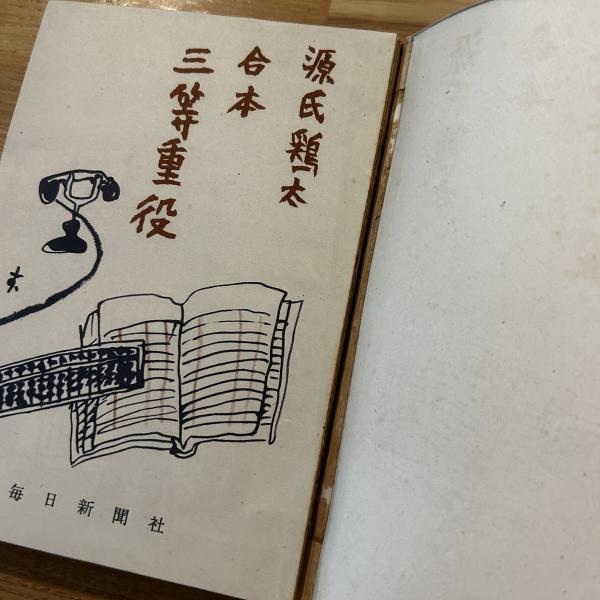 源氏鶏太
合本
三等重役
毎日新聞社